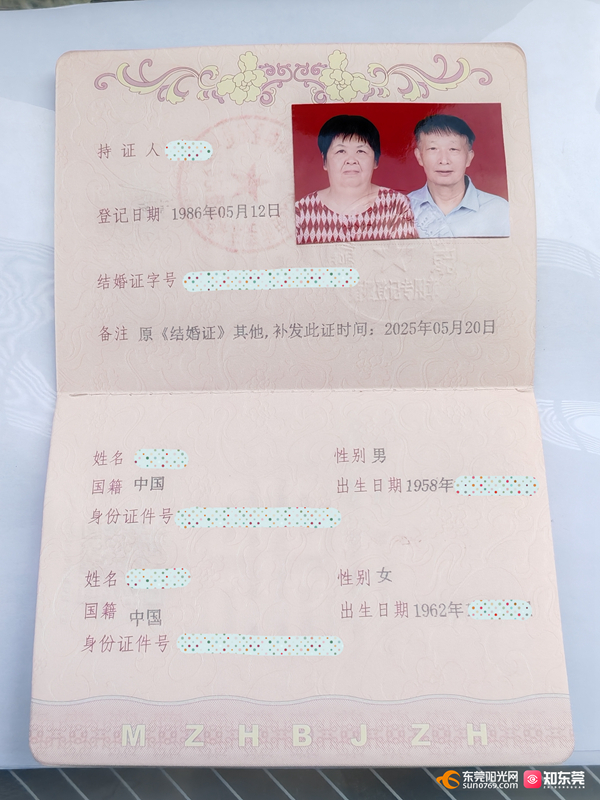 持证人
登记日期 1986年05月12日
结婚证字号
备注 原《结婚证》其他,补发此证时间：2025年05月20日
姓名 性别 男
国籍 中国 出生日期 1958年
身份证件号
姓名 性别 女
国籍 中国 出生日期 1962年
身份证件号
M Z H B J Z H
东莞阳光网 sun0769.com 知东莞